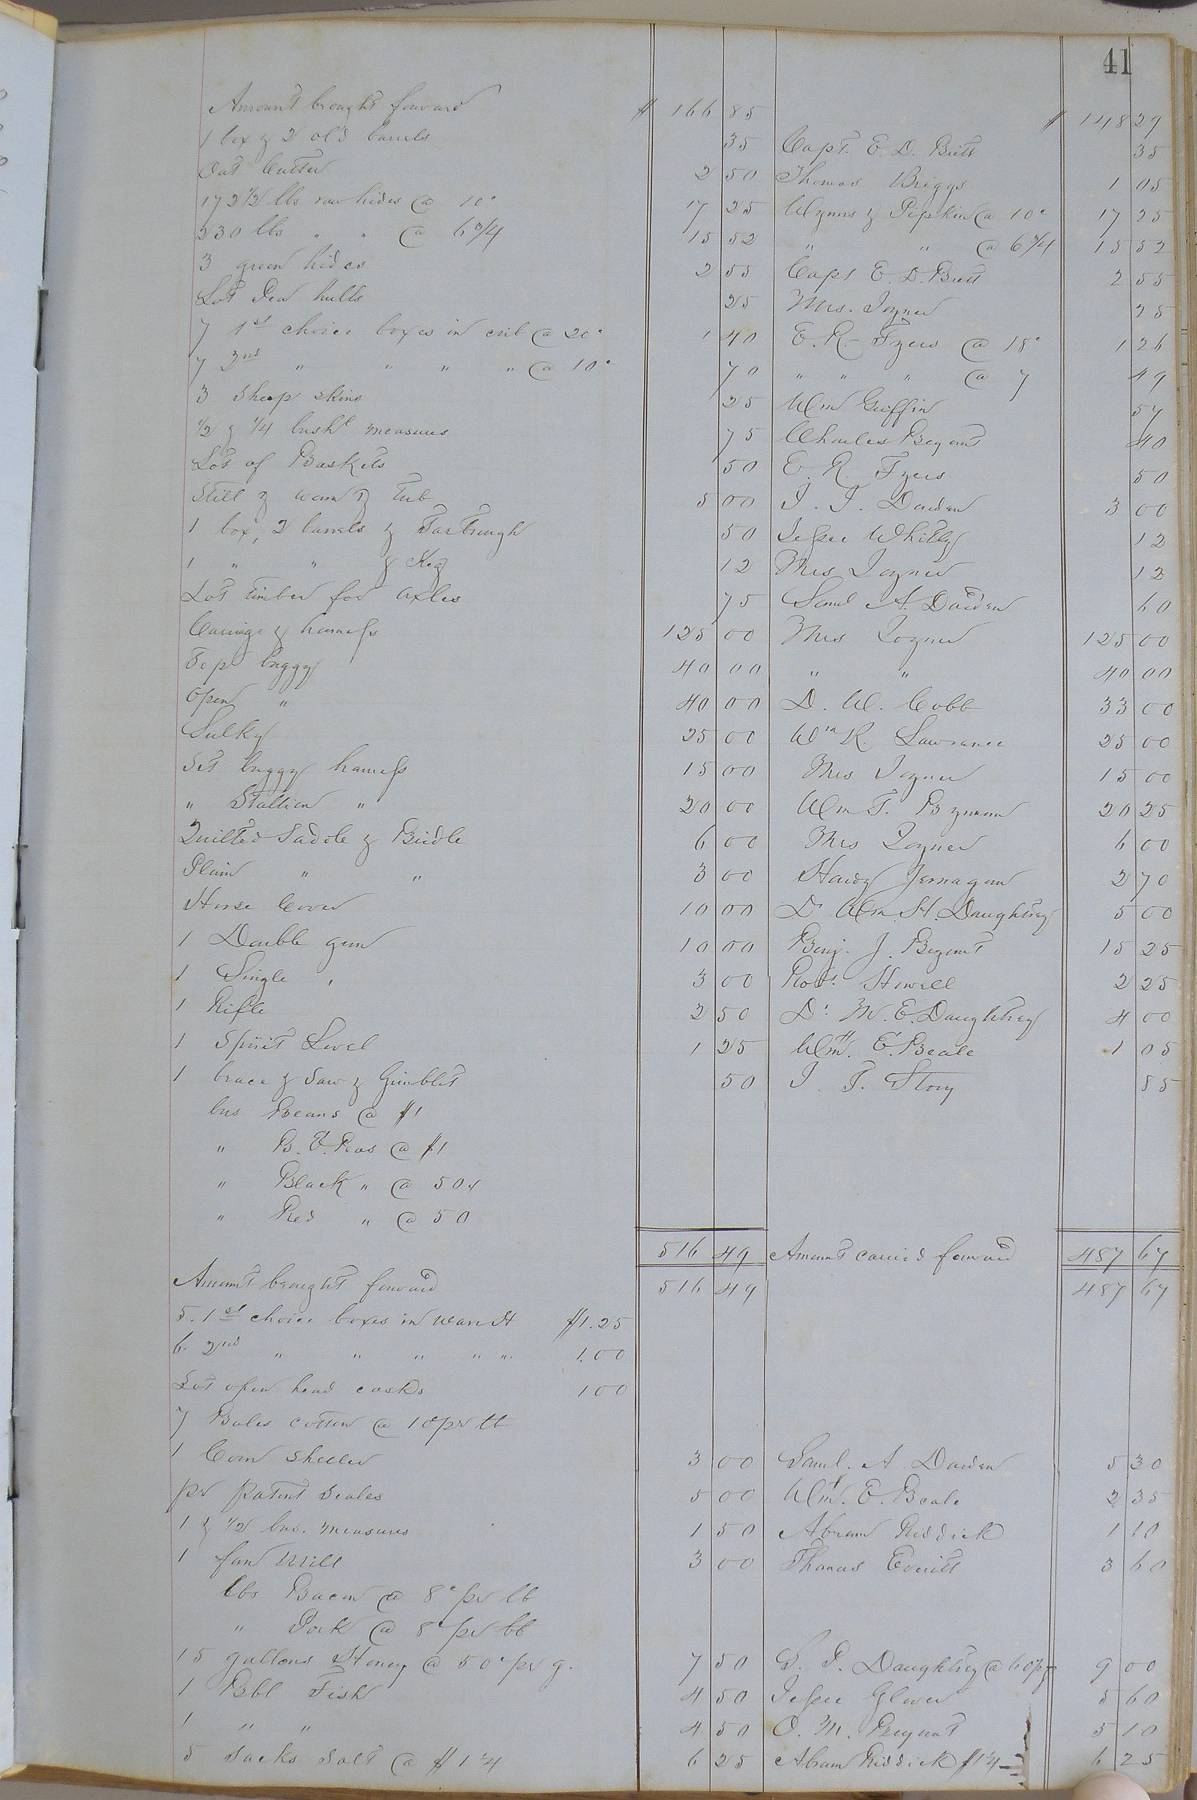 41
Amount brought forward $ 166 85 $ 148 29
1 box & 2 old barrels 35 Capt. E. D. Britt 35
Oat Cutter 2 50 Thomas Briggs 1 05
172 1/2 lbs raw hides @ 10c 17 25 Wynns & Pipkin @ 10c 17 25
230 lbs " " @ 6 3/4 15 52 " " @ 6 3/4 15 52
3 green hides 2 55 Capt E. D. Britt 2 55
Lot Pea hulls 25 Mrs. Joyner 25
7 1st choice boxes in crib @ 20c 1 40 E. R. Tyers @ 18c 1 26
7 2nd " " " " @ 10c 70 " " " @ 7 49
3 Sheep skins 25 Wm Griffin 57
1/2 & 1/4 bushl measures 75 Charles Bryant 40
Lot of Baskets 50 E. R. Tyers 50
Still & worm & Tub 5 00 J. J. Darden 3 00
1 box, 2 barrels & Tar Trough 50 Jesse Whitley 12
1 " " & Keg 12 Mrs Joyner 12
Lot timber for axles 75 Saml A. Darden 60
Carriage & harness 125 00 Mrs Joyner 125 00
Top buggy 40 00 " " 40 00
Open " 40 00 D. W. Cobb 33 00
Sulky 25 00 Wm R. Lawrance 25 00
Set buggy harness 15 00 Mrs Joyner 15 00
" Stallion " 20 00 Wm T. Bynum 20 25
Quilted Saddle & Bridle 6 00 Mrs Joyner 6 00
Plain " " 3 00 Hardy Jernagan 2 70
Horse Cover 10 00 Dr Wm H. Daughtrey 5 00
1 Double gun 10 00 Benj. J. Bryant 15 25
1 Single " 3 00 Robt. Howell 2 25
1 Rifle 2 50 Dr. W. E. Daughtrey 4 00
1 Spirit Level 1 25 Wm. H. E. Beale 1 05
1 brace & Saw & Gimblets 50 J. T. Story 85
bus Beans @ $1
" B. E. Peas @ $1
" Black " @ 50c
" Red " @ 50
516 49 Amount carried forward 487 67
Amount brought forward 516 49 487 67
5. 1st choice boxes in ware H $1.25
6. 2nd " " " " " 1.00
Lot open head casks 1 00
7 Bales cotton @ 10c pr lb
1 Corn Sheller 3 00 Saml. A Darden 5 30
pr patent Scales 5 00 Wm. H. E. Beale 2 35
1 & 1/2 bus. measures 1 50 Abram Riddick 1 10
1 fan Mill 3 00 Thomas Everitt 3 60
lbs Bacon @ 8c pr lb
" Pork @ 8c pr lb
15 gallons Honey @ 50c pr g. 7 50 S. P. Daughtrey @ 60 pg 9 00
1 Bbl Fish 4 50 Jesse Glover 5 60
1 " " 4 50 O. M. Bryant 5 10
5 Sacks Salt @ $1 1/4 6 25 Abram Riddick $1 1/4 6 25